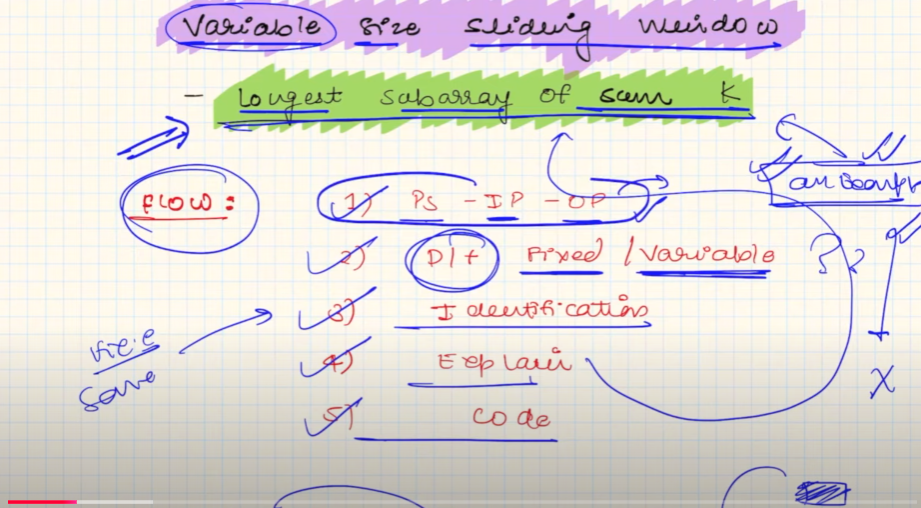 Variable Size Sliding Window
- Longest Subarray Of Sum K
FLOW:
1) PS - IP - OP
2) Diff Fixed / Variable
3) Identification
4) Explain
5) Code